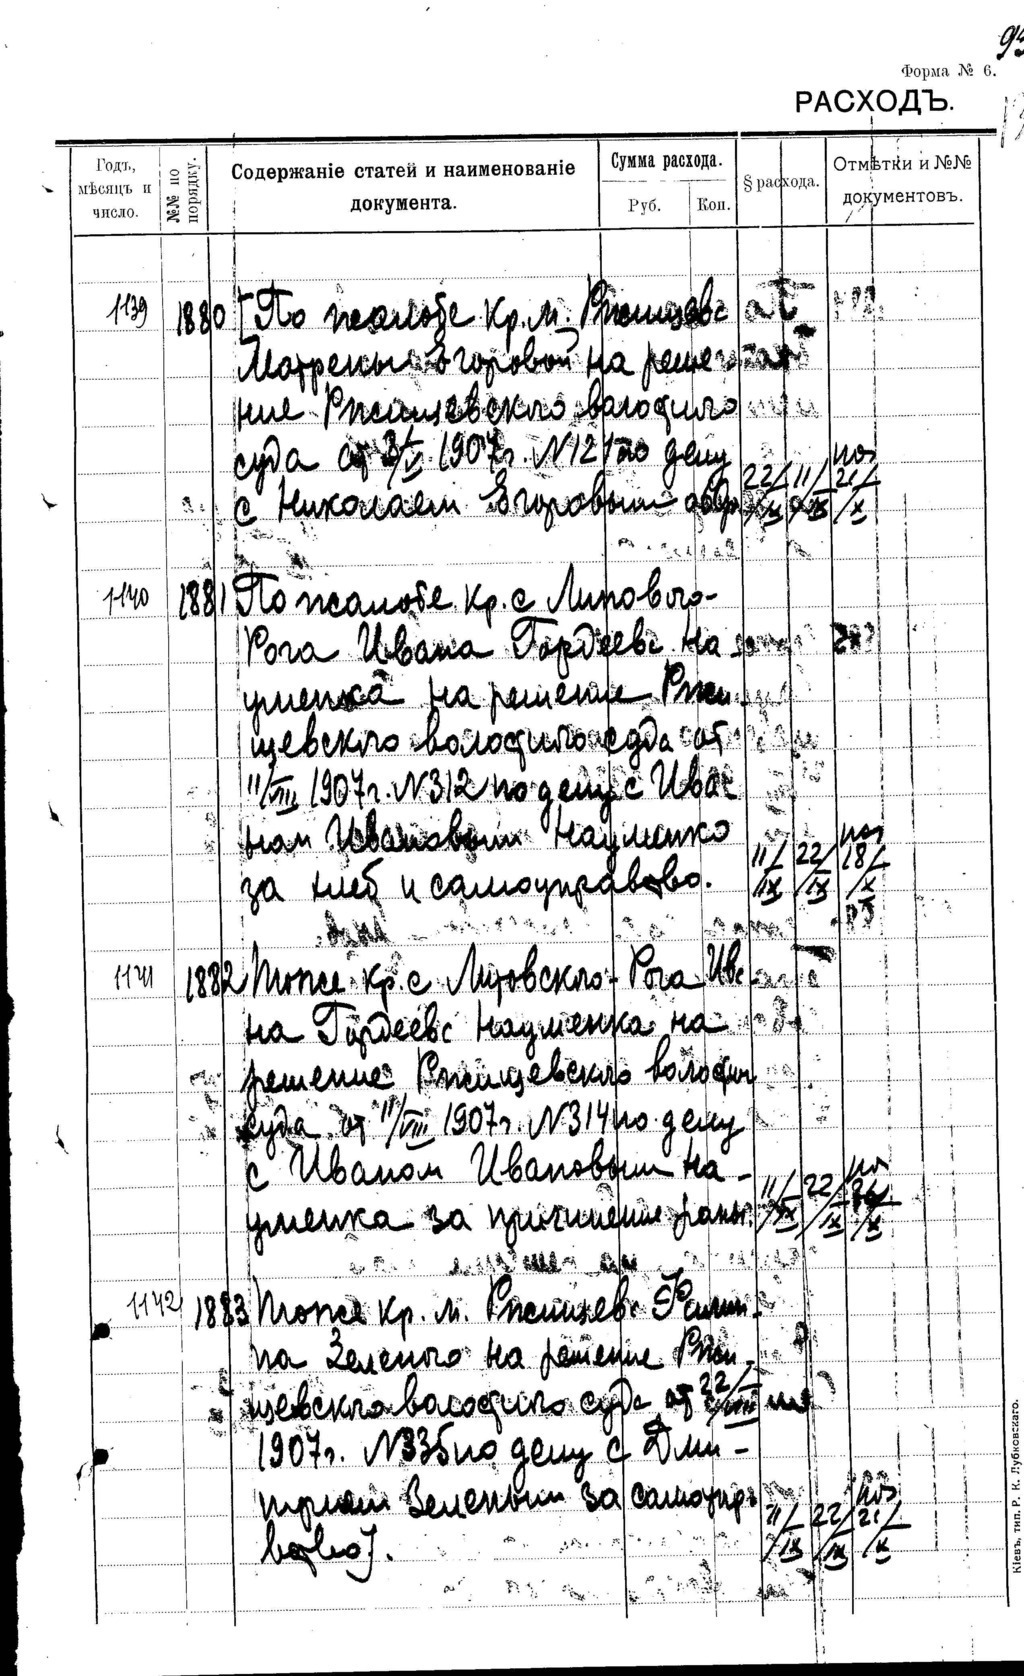 Форма № 6.
РАСХОДЪ.
Годъ, мѣсяцъ и число.
№№ по порядку.
Содержаніе статей и наименованіе документа.
Сумма расхода.
Руб.
Коп.
§ расхода.
Отмѣтки и №№ документовъ.
1139 1880 [По жалобе кр. м. Ржищевс
Матрены Егоровой на реше
ние Ржищевского волостного
суда от 1907 г. N 121 по делу
с Николаем Егоровым
22/IX 11/IX 21/X
1140 1881 По жалобе кр. с Липового-
Рога Ивана Гордеевс На
уменка на решение Ржи
щевского волостного суда от
11/VIII 1907 г. N 312 по делу с Ива
ном Ивановым Науменко
за хлеб и самоуправство.
11/IX 22/IX 18/X
1141 1882 Тоже кр. с Рога Ива
на Гордеевс Науменка на
решение Ржищевского волостн
суда от 11/VIII 1907 г. N 314 по делу
с Иваном Ивановым На-
уменка за причинение раны.
11/IX 22/IX
1142 1883 Тоже кр. м. Ржищевс Филип-
па Зеленого на решение Ржи
щевского волостного суда от 22/VIII
1907 г. N 335 по делу с Дми-
трием Зеленым за самоупра
вство].
11/IX 22/IX 21/X
Кіевъ, тип. Р. К. Лубковскаго.